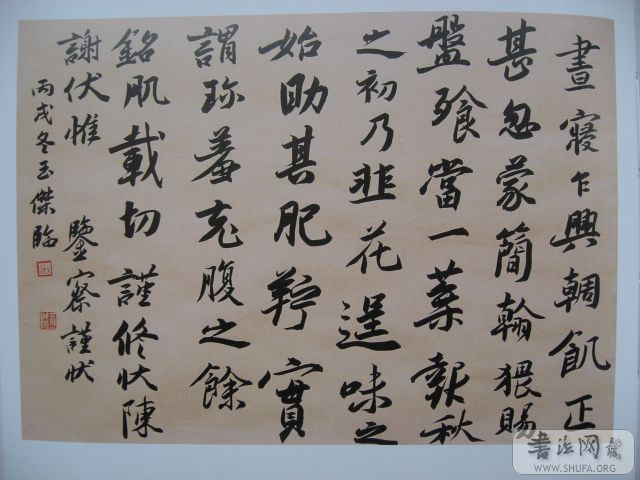 晝寢乍興輖飢正
甚忽蒙簡翰猥賜
盤飧當一葉報秋
之初乃韭花逞味之
始助其肥羜實
謂珍羞充腹之餘
銘肌載切謹修狀陳
謝伏惟 鑒察謹狀
丙戌冬玉傑臨
書法网
WWW.SHUFA.ORG